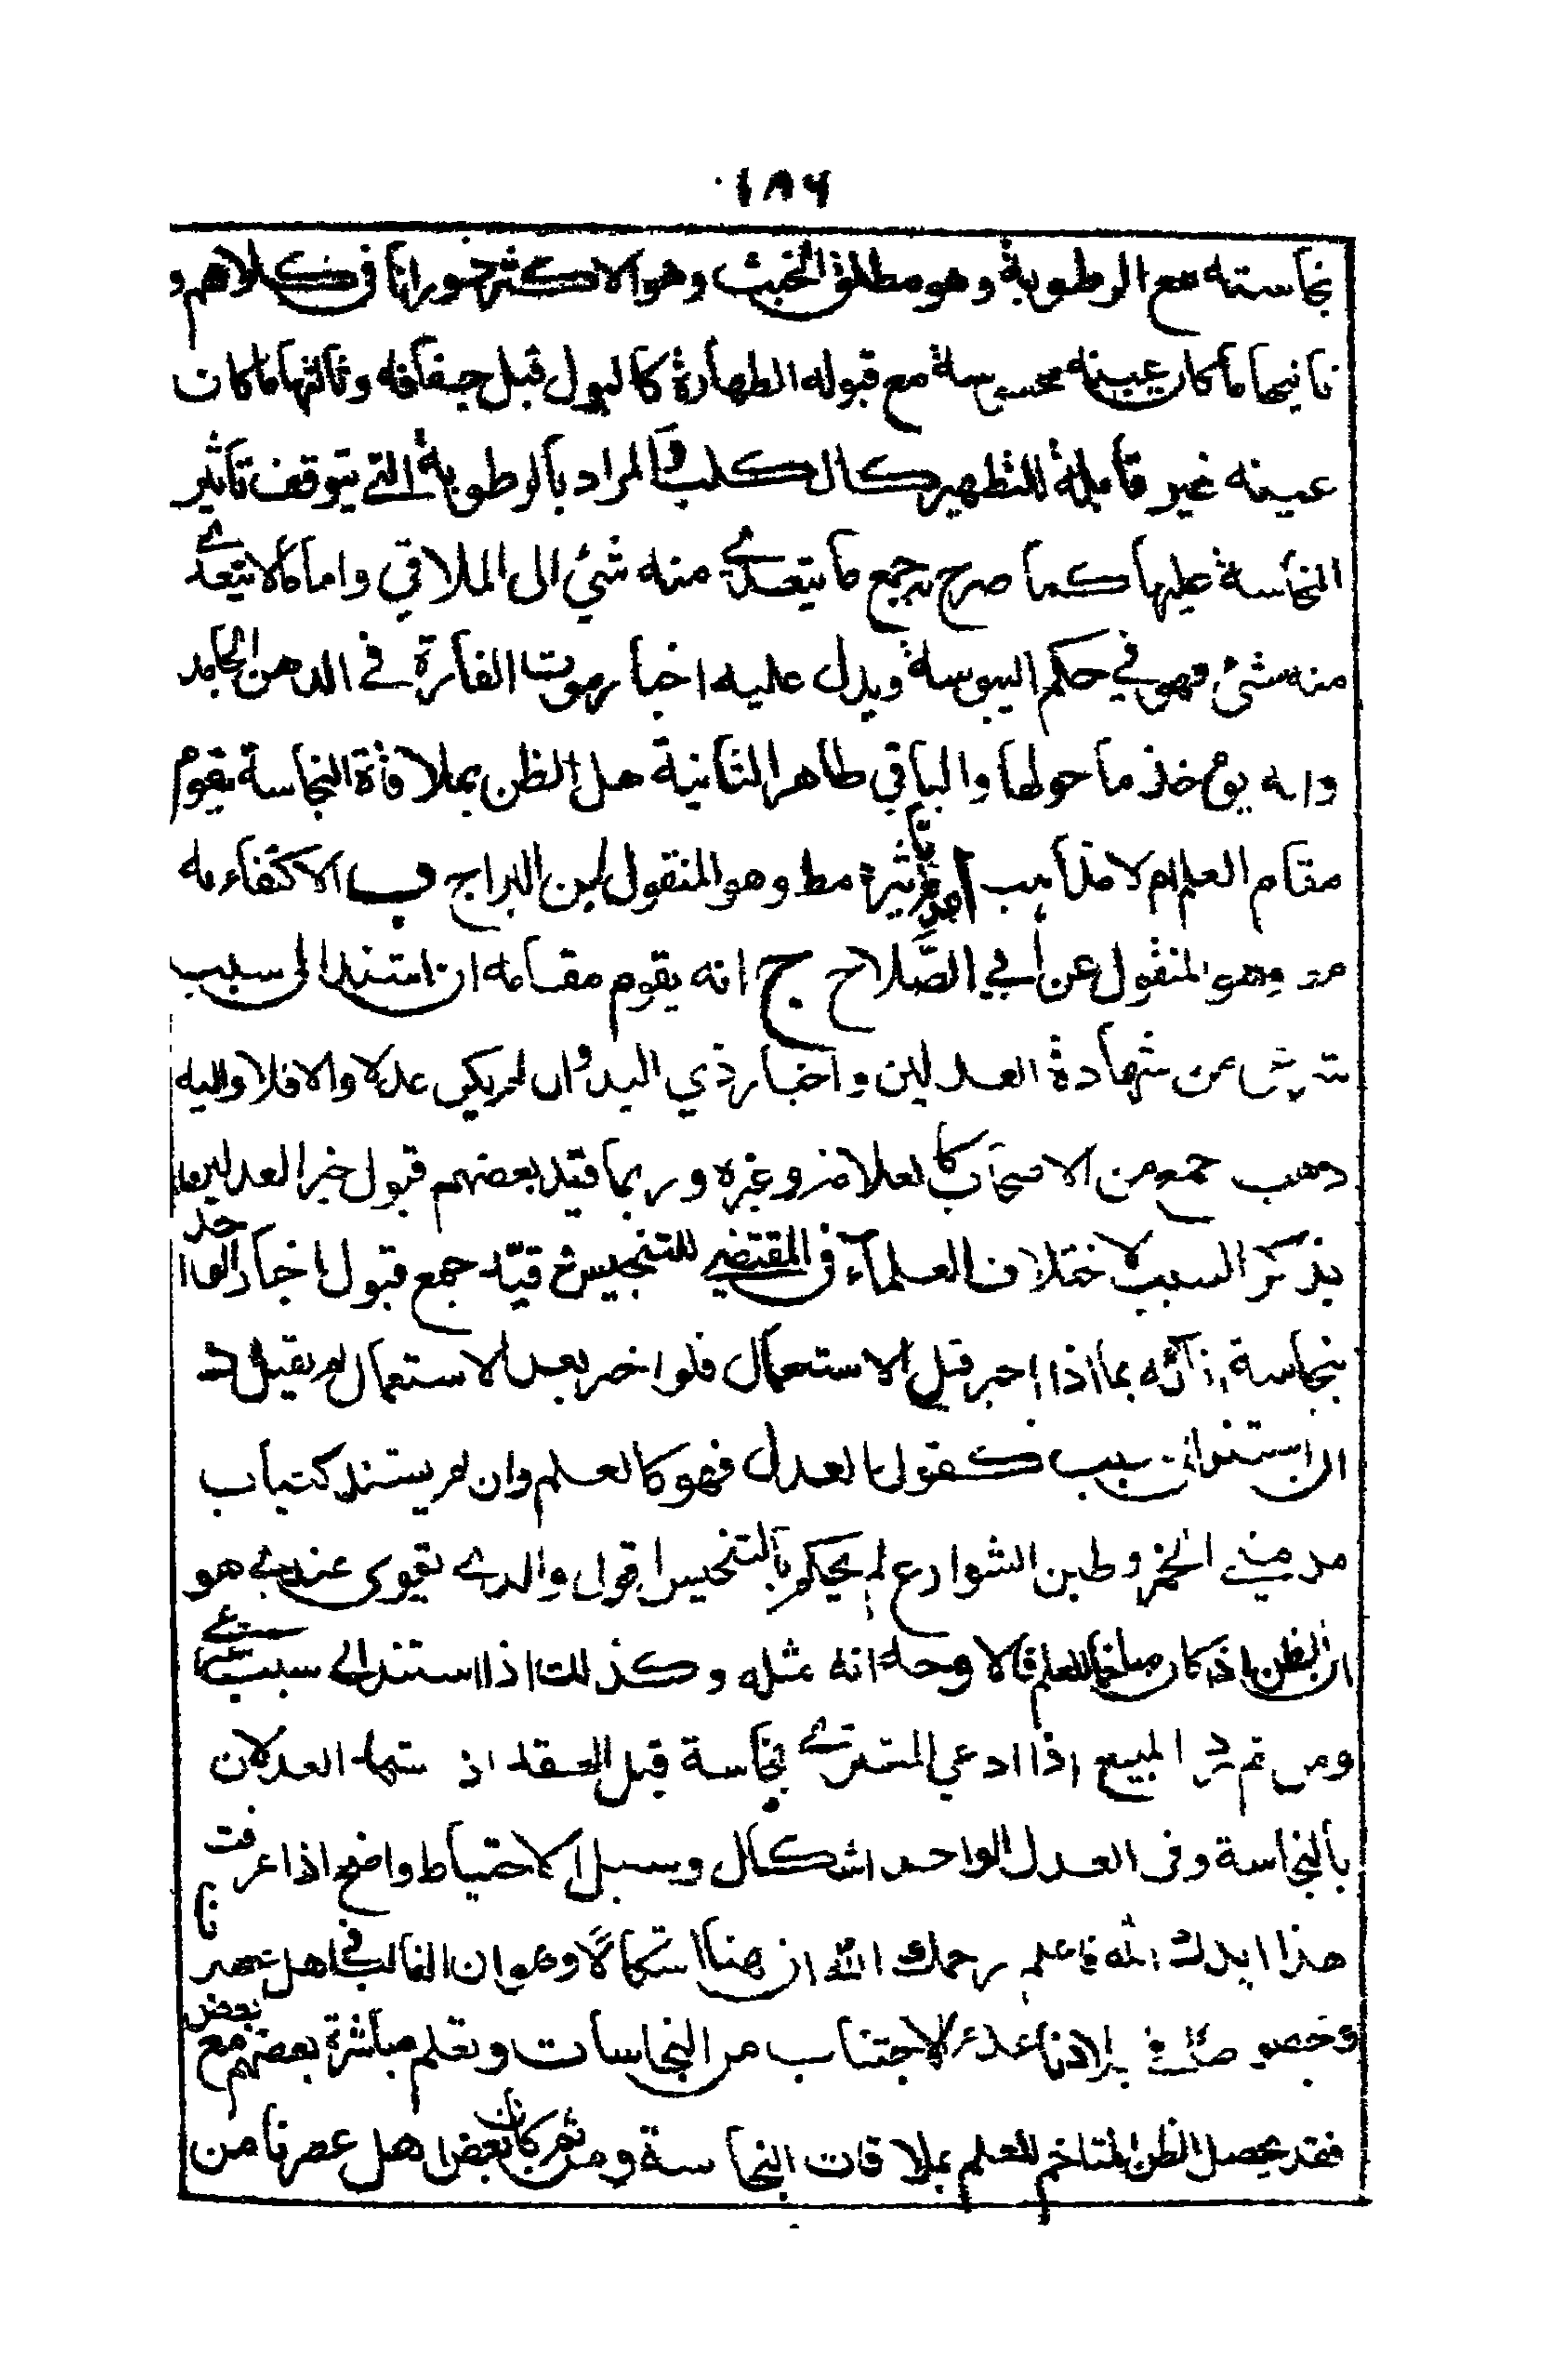 ١٨٦
نجاسته مع الرطوبة وهو مطلق الخبث وهو الاكثر دورانا في كلامهم و
ثانيها ما كان عينه محسوسة مع قبوله الطهارة كالبول قبل جفافه وثالثها ما كان
عينه غير قابلة للتطهير كالكلب والمراد بالرطوبة التي يتوقف تاثير
النجاسة عليها كما صرح به جمع ما يتعدي منه شئ الى الملاقي واما ما لا يتعدي
منه شئ فهو في حكم اليبوسة ويدل عليه اخبار موت الفارة في الدهن الجامد
وانه يؤخذ ما حولها والباقي طاهر الثانية هل الظن بملاقاة النجاسة يقوم
مقام العلم ام لا مذاهب تاثيره مط وهو المنقول ابن البراج ب الاكتفاء به
وهو المنقول عن أبي الصّلاح ج انه يقوم مقامه ان استند الى سبب
شرعي من شهادة العدلين واخبار ذي اليد وان لم يكن عدلا والا فلا واليه
ذهب جمع من الاصحاب كالعلامة وغيره وربما قيد بعضهم قبول خبر العدلين
بذكر السبب لاختلاف العلماء في المقتضي للتنجيس قيّد جمع قبول اخبار الواحد
بنجاسة انائه بما اذا اخبر قبل الاستعمال فلو اخبر بعد الاستعمال لم يقبل د
ان استند الى سبب كقول العدل فهو كالعلم وان لم يستند كثياب
مدمني الخمر وطين الشوارع لم يحكم بالتنجيس اقول والدي يقوى عندي هو
ان الظن اذ كان متاخما للعلم فالاوجه انه مثله وكذلك اذا استند الى سبب شرعي
ومن ثم يرد المبيع اذا ادعي المشتري نجاسة قبل العقد اذ شهد العدلان
بالنجاسة وفي العدل الواحد اشكال وسبيل الاحتياط واضح اذا عرفت
هذا ايدك الله فاعلم رحمك الله ان هنا اشكالا وهو ان الغالب في اهل عصرنا
وخصوصا في بلادنا عدم الاجتناب من النجاسات ونعلم مباشرة بعضهم مع بعض
فقد يحصل الظن المتاخم للعلم بملاقات النجاسة ومن ثم كان بعض اهل عصرنا من